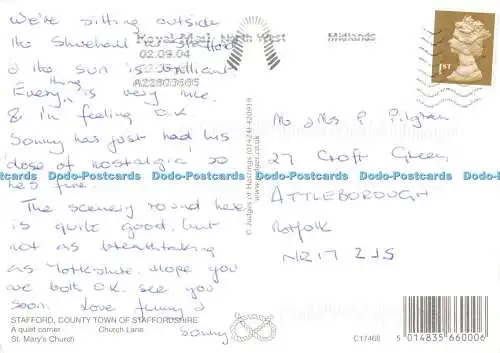 We're sitting outside
the Shirehall in Stafford
& the sun is brilliant
Everything is very nice.
& I'm feeling O.K.
Sonny has just had his
'dose of nostalgia' so
he's fine.
The scenery round here
is quite good, but
not as breathtaking
as Yorkshire. Hope you
are both O.K. see you
soon. Love
Sonny
STAFFORD, COUNTY TOWN OF STAFFORDSHIRE
A quiet corner Church Lane
St. Mary's Church
Royal Mail North West Midlands
02.09.04
1ST
© Judges of Hastings (01424) 420919
Mr & Mrs P. Pilgram
27 Croft Green,
ATTLEBOROUGH
Norfolk
NR17 2JS
C17468
5 014835 660006
Dodo-Postcards Dodo-Postcards Dodo-Postcards Dodo-Postcards Dodo-Postcards Dodo-Postcards